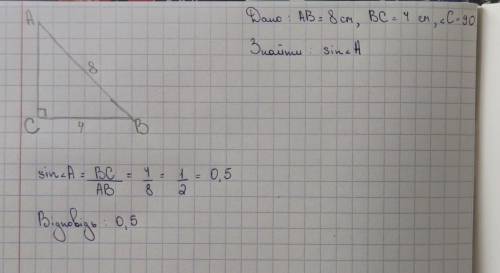 Дано: AB = 8 см, BC = 4 см, ∠C = 90
Знайти: sin∠A
A
8
C
4
B
sin∠A = BC/AB = 4/8 = 1/2 = 0,5
Відповідь: 0,5